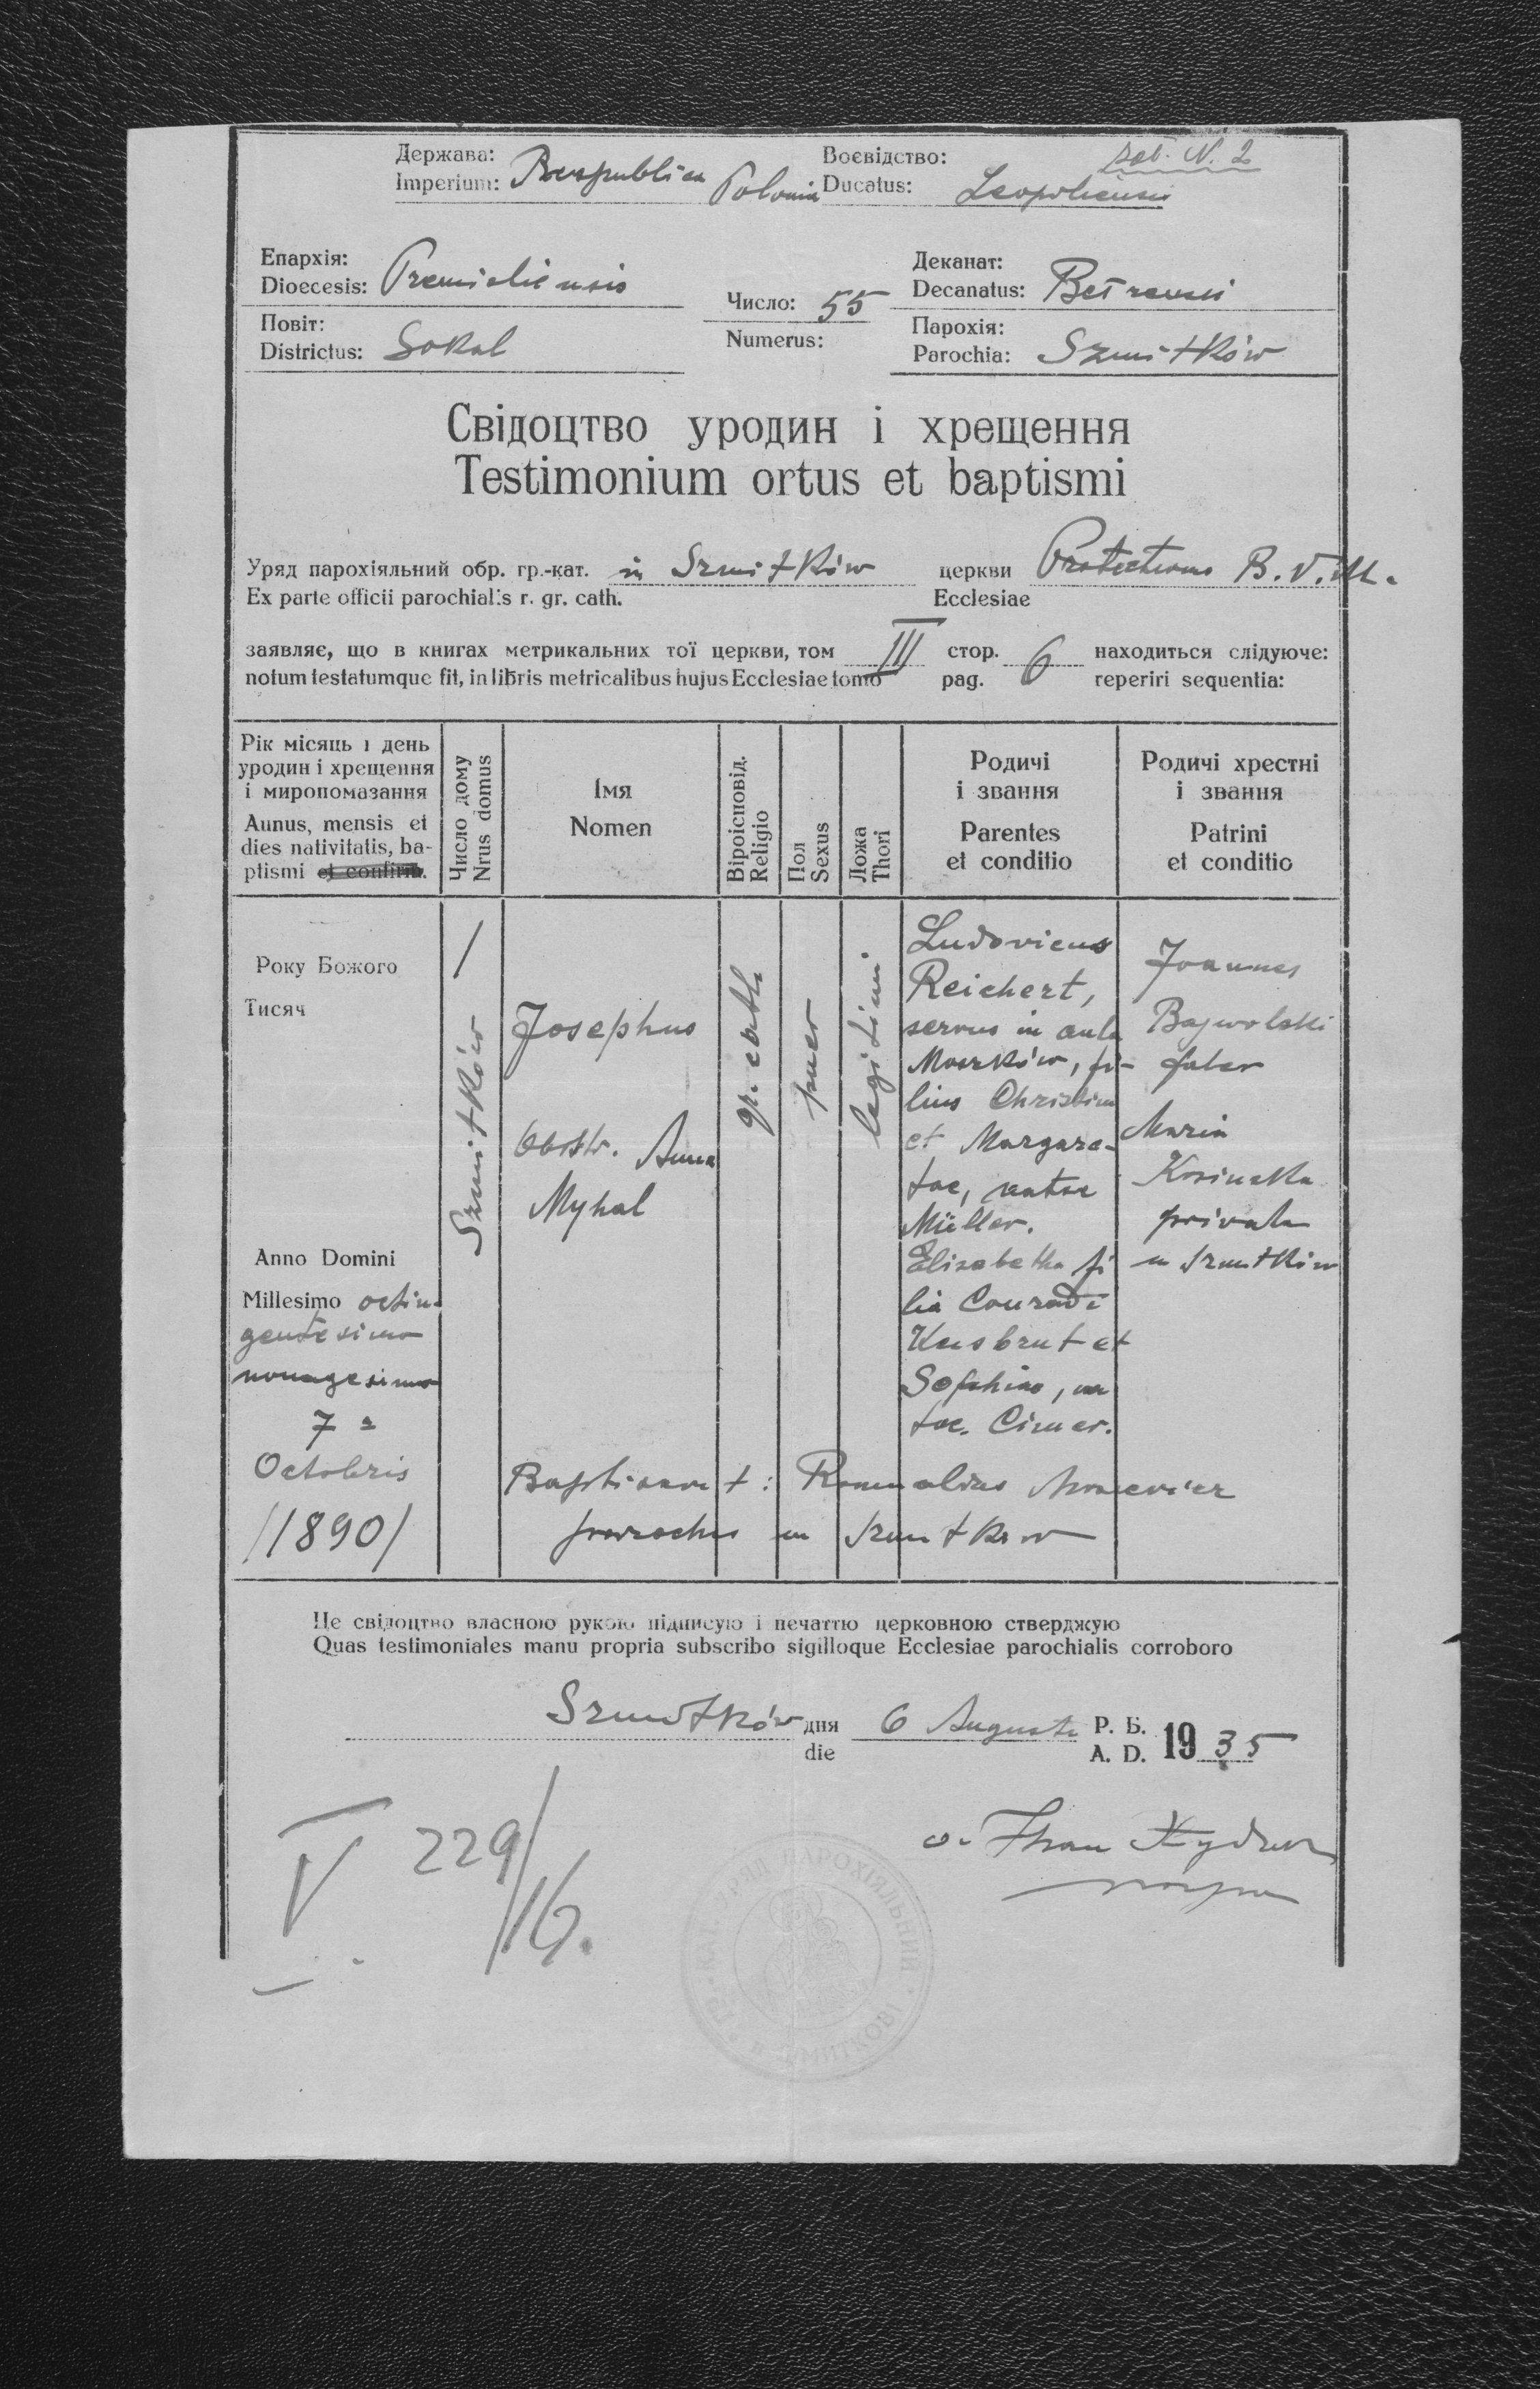 Держава:
Imperium: Respublica Polonia
Воєвідство:
Ducatus: Leopoliensis
zał. N. 2
Епархія:
Dioecesis: Premisliensis
Повіт:
Districtus: Sokal
Число: 55
Numerus:
Деканат:
Decanatus:
Парохія:
Parochia: Szmitków
Свідоцтво уродин і хрещення
Testimonium ortus et baptismi
Уряд парохіяльний обр. гр.-кат. in Szmitków церкви Protectionis B.V.M.
Ex parte officii parochialis r. gr. cath. Ecclesiae
заявляє, що в книгах метрикальних тої церкви, том III стор. 6 находиться слідуюче:
notum testatumque fit, in libris metricalibus hujus Ecclesiae tomo pag. reperiri sequentia:
Рік місяць і день
уродин і хрещення
і миропомазання
Annus, mensis et
dies nativitatis, ba-
ptismi et confirm.
Число дому
Nrus domus
Імя
Nomen
Віроісповід.
Religio
Пол
Sexus
Ложа
Thori
Родичі
і звання
Parentes
et conditio
Родичі хрестні
і звання
Patrini
et conditio
Року Божого
Тисяч
Anno Domini
Millesimo octin-
gentesimo
nonagesimo
7 a
Octobris
/1890/
Szmitków
Josephus
Obstr. Anna
Myhal
gr. cath
puer
legitimi
Ludovicus
Reichert,
servus in aula
Moszków, fi-
lius Christini
et Margare-
tae, natae
Müller.
Elisabetha fi
lia Conradi
Keisbrut et
Sophiae, na
tae. Cimer.
Joannes
Bajwolski
faber
Maria
Kosinska
privata
in Szmitków
Baptisavit: Romualdus
parochus in Szmitków
Це свідоцтво власною рукою підписую і печаттю церковною стверджую
Quas testimoniales manu propria subscribo sigilloque Ecclesiae parochialis corroboro
Szmitków дня 6 Augusti Р. Б. 1935
die A. D.
V 229/16.
ГР. КАТ. УРЯД ПАРОХІЯЛЬНИЙ В ШМИТКОВІ